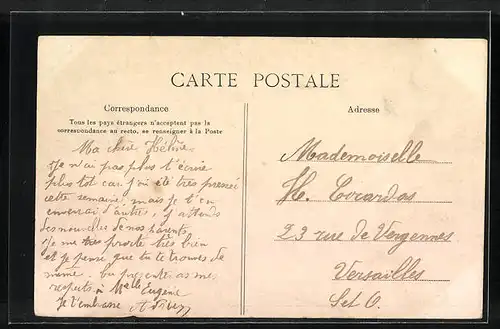 CARTE POSTALE
Correspondance
Tous les pays étrangers n'acceptent pas la
correspondance au recto, se renseigner à la Poste
Adresse
Ma chère Hélène
Je n'ai pas pu t'écrire
plus tôt car j'ai été très pressé
cette semaine, mais je t'en
enverrai d'autres. J'attends
des nouvelles de nos
Je me très porte très bien
et je pense que tu te trouves de
même. Tu présenteras mes
respects à Melle Eugénie
Je t'embrasse
Mademoiselle
H. Cocardas
23 rue de Vergennes
Versailles
S et O.